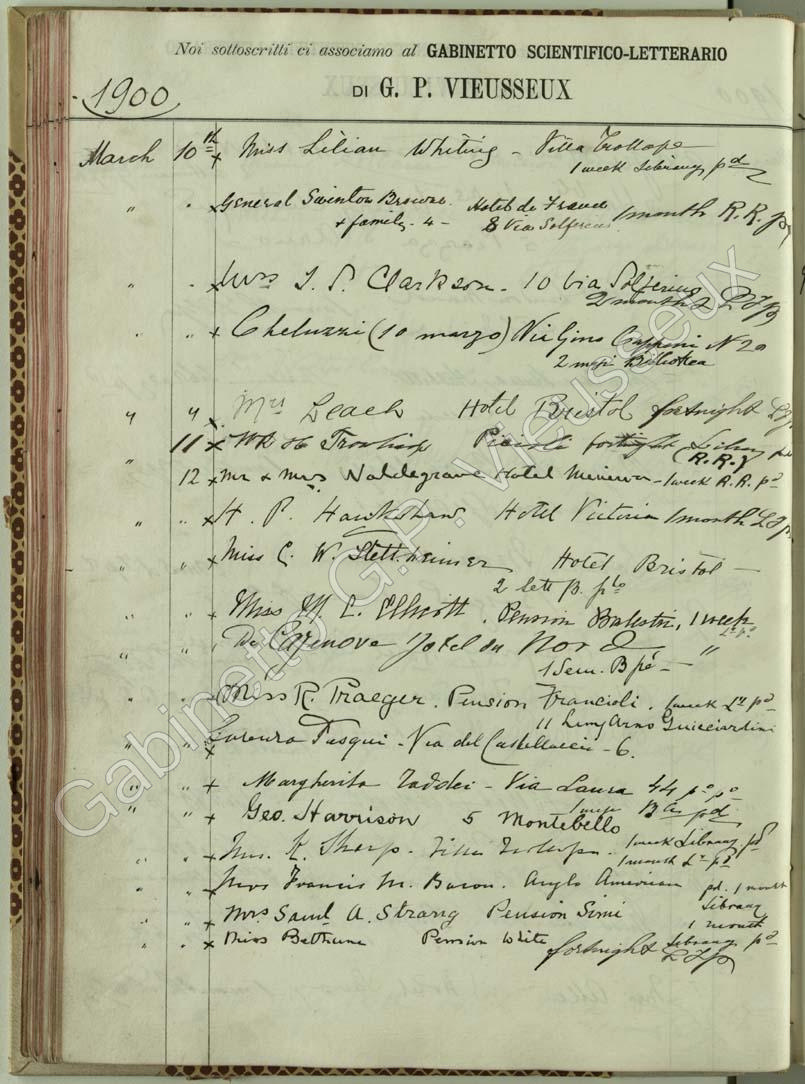 Noi sottoscritti ci associamo al GABINETTO SCIENTIFICO-LETTERARIO
DI G. P. VIEUSSEUX
1900
March 10th x Miss Lilian Whiting - Villa Trollope
1 week Library pd
" " x General Swinton Browne Hotel de France 1 month R.R. pd
+ family - 4 - 8 Via Solferino
" " x Mrs J. P. Clarkson - 10 via Solferino
2 months
" " x Cheluzzi (10 marzo) Via Gino Capponi N 20
2 mesi Biblioteca
" " x Mrs Leach Hotel Bristol fortnight
" 11 x fortnight Library pd
(R.R.)
12 x Mr & Mrs Waldegrave Hotel Minerva - 1 week R.R. pd
" " x H. P. Hawkshaw Hotel Victoria 1 month
" " x Miss C. W. Stettheimer Hotel Bristol -
2 lett B. pto
" " x Miss M. L. Ellicott. Pension Balestri, 1 week
Lr pd
" " De Cazenove Hotel du Nord "
1 Sem. B pé -
" " x Miss R. Praeger. Pension Francioli. 1 week Lr pd
11 Lung Arno Guicciardini
" " x Lorenzo - Via del Castellaccio - 6.
" " + Margherita Taddei - Via Laura 44 po
1 mese pd
" " x Geo. Harrison 5 Montebello
1 week Library pd
" " x Mrs. K. Sharp - Villa Trollope.
1 month Lr pd
" " x Mrs Francis M. Bacon. Anglo American pd. 1 month
Library
" " x Mrs Saml A. Strang Pension Simi
1 month
Library pd
" " x Miss Bethune Pension White fortnight
Gabinetto G.P. Vieusseux